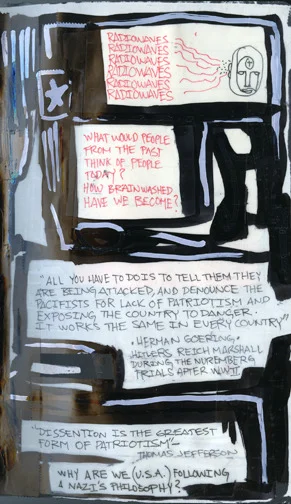 RADIOWAVES
RADIOWAVES
RADIOWAVES
RADIOWAVES
RADIOWAVES
RADIOWAVES
WHAT WOULD PEOPLE
FROM THE PAST
THINK OF PEOPLE
TODAY?
HOW BRAINWASHED
HAVE WE BECOME?
"ALL YOU HAVE TO DO IS TO TELL THEM THEY
ARE BEING ATTACKED, AND DENOUNCE THE
PACIFISTS FOR LACK OF PATRIOTISM AND
EXPOSING THE COUNTRY TO DANGER.
IT WORKS THE SAME IN EVERY COUNTRY"
- HERMAN GOERING -
HITLERS REICH MARSHALL
DURING THE NUREMBERG
TRIALS AFTER WWII
"DISSENTION IS THE GREATEST
FORM OF PATRIOTISM" -
THOMAS JEFFERSON
WHY ARE WE (U.S.A.) FOLLOWING
A NAZI'S PHILOSOPHY?